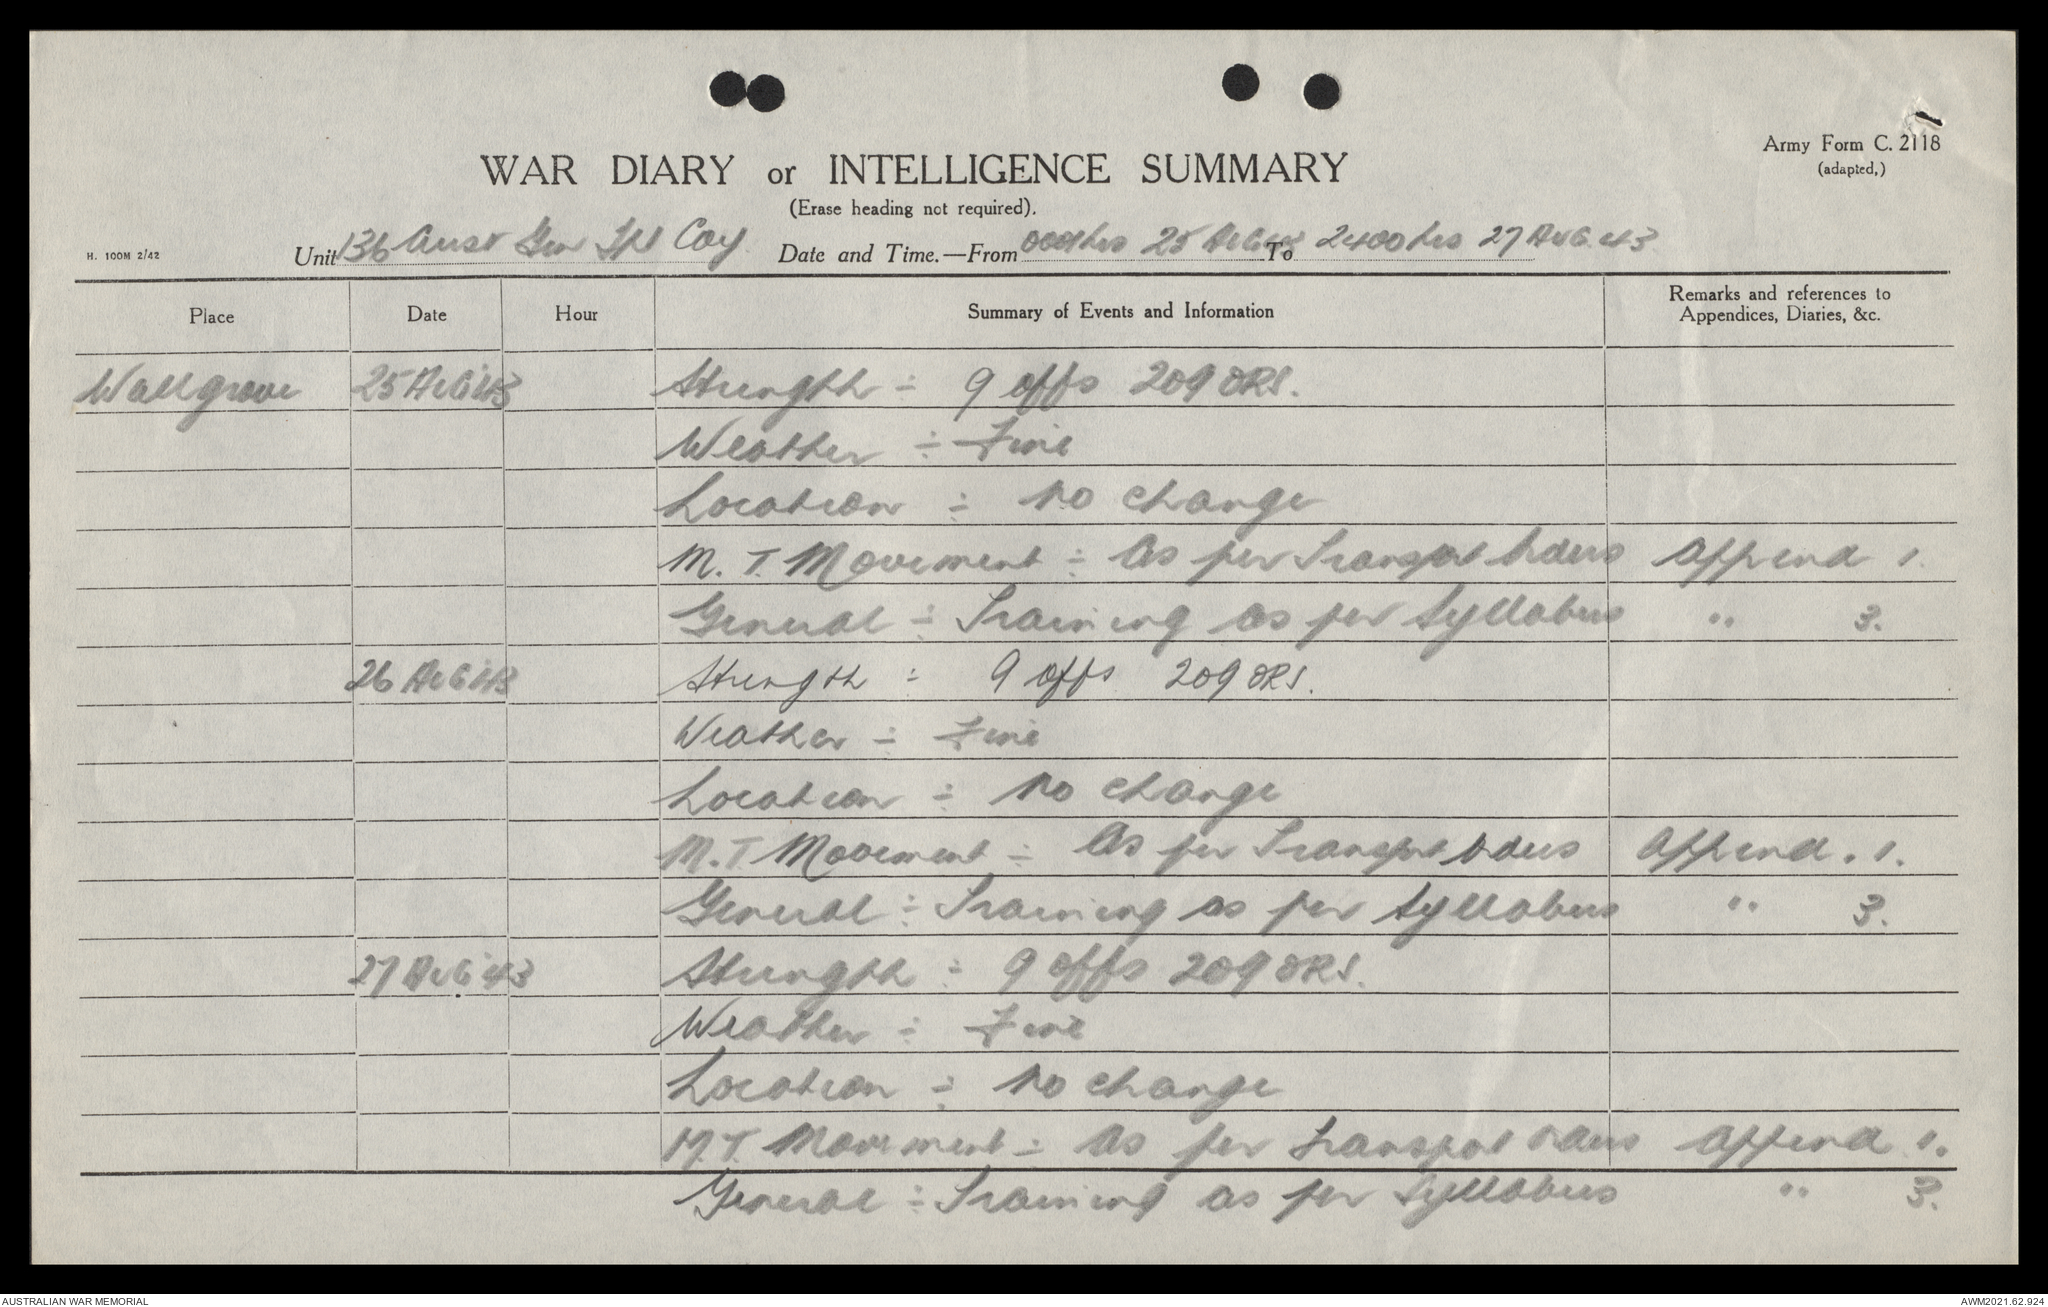 Army Form C. 2118
(adapted,)
WAR DIARY or INTELLIGENCE SUMMARY
(Erase heading not required).
H. 100M 2/42
Unit 136 Aust Gen Tpt Coy Date and Time.—From 0001hrs 25 AUG 43 To 2400hrs 27 AUG 43
Place Date Hour Summary of Events and Information Remarks and references to Appendices, Diaries, &c.
Wallgrove 25 AUG 43 Strength ÷ 9 offs 209 ORS.
Weather ÷ Fine
Location ÷ No change
M. T. Movement ÷ As per Transport Orders Append 1.
General ÷ Training as per Syllabus " 3.
26 AUG 43 Strength ÷ 9 offs 209 ORS.
Weather ÷ Fine
Location ÷ No change
M.T Movement ÷ As per Transport Orders Append. 1.
General ÷ Training as per Syllabus " 3.
27 AUG 43 Strength ÷ 9 offs 209 ORS.
Weather ÷ Fine
Location ÷ No change
M.T. Movement ÷ As per Transport Orders Append 1.
General ÷ Training as per Syllabus " 3.
AUSTRALIAN WAR MEMORIAL AWM2021.62.924